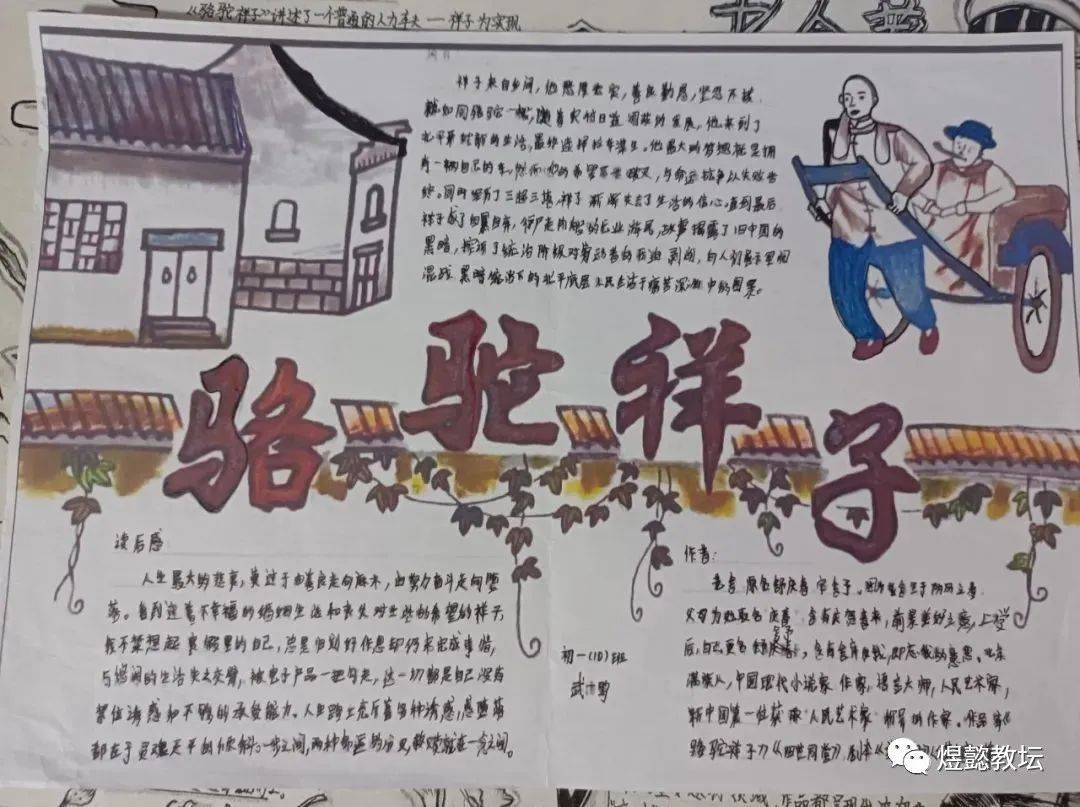 《骆驼祥子》讲述了一个普通的人力车夫——祥子为实现
祥子来自乡间,他憨厚老实,善良勤恳,坚忍不拔
就如同骆驼一般,随着
北平开始新的生活,最终选择拉车谋生。他最大的梦想就是拥
有一辆自己的车,然而他的希望 破灭,与命运抗争以失败告
终。同时经历了三起三落,祥子渐渐失去了生活的信心,直到最后
祥子成了自暴自弃,行尸走肉般的无业游民,故事揭露了旧中国的
黑暗,控诉了统治阶级对劳动者的压迫剥削,向人们展示军阀
混战、黑暗统治下的北平底层人民生活于痛苦深渊中的图景。
骆驼祥子
读后感:
人生最大的悲哀,莫过于由善良走向麻木,由努力奋斗走向堕
落。看到过着不幸福的婚姻生活和丧失对生活的希望的祥子,
我不禁想起寒假里的自己,总是计划好作息却仍未完成事情,
与 的生活失之交臂,被电子产品一把勾走,这一切都是自己没有
禁住诱惑和不够的承受能力。人生路上充斥着各种诱惑,
都在于灵魂天平的倾斜一步之间,两种命运的分叉,就在一念之间。
初一(10)班
作者:
老舍 原名舒庆春 字舍予。因为老舍生于阴历立春,
父母为他取名"庆春",含有庆贺春来,前景美好之意。上学
后,自己更名舒舍予,含有舍弃自我,即忘我的意思。北京
满族人,中国现代小说家 作家,语言大师,人民艺术家,
新中国第一位获得"人民艺术家"称号的作家。作品有《
骆驼祥子》《四世同堂》,剧本《
煜懿教坛